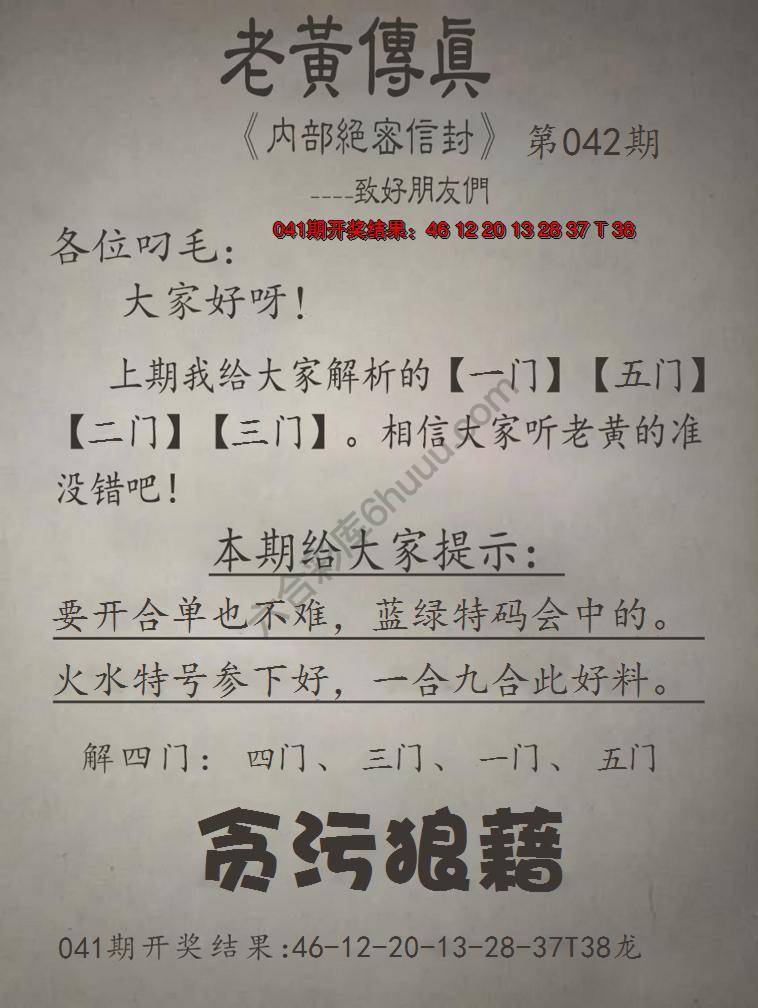 老黃傳眞
《内部絕密信封》 第042期
----致好朋友們
041期开奖结果：46 12 20 13 28 37 T 38
各位叼毛：
大家好呀！
上期我给大家解析的【一门】【五门】
【二门】【三门】。相信大家听老黄的准
没错吧！
本期给大家提示：
要开合单也不难，蓝绿特码会中的。
火水特号参下好，一合九合此好料。
解四门： 四门、 三门、 一门、 五门
贪污狼藉
041期开奖结果:46-12-20-13-28-37T38龙
六合彩库6huuu.com